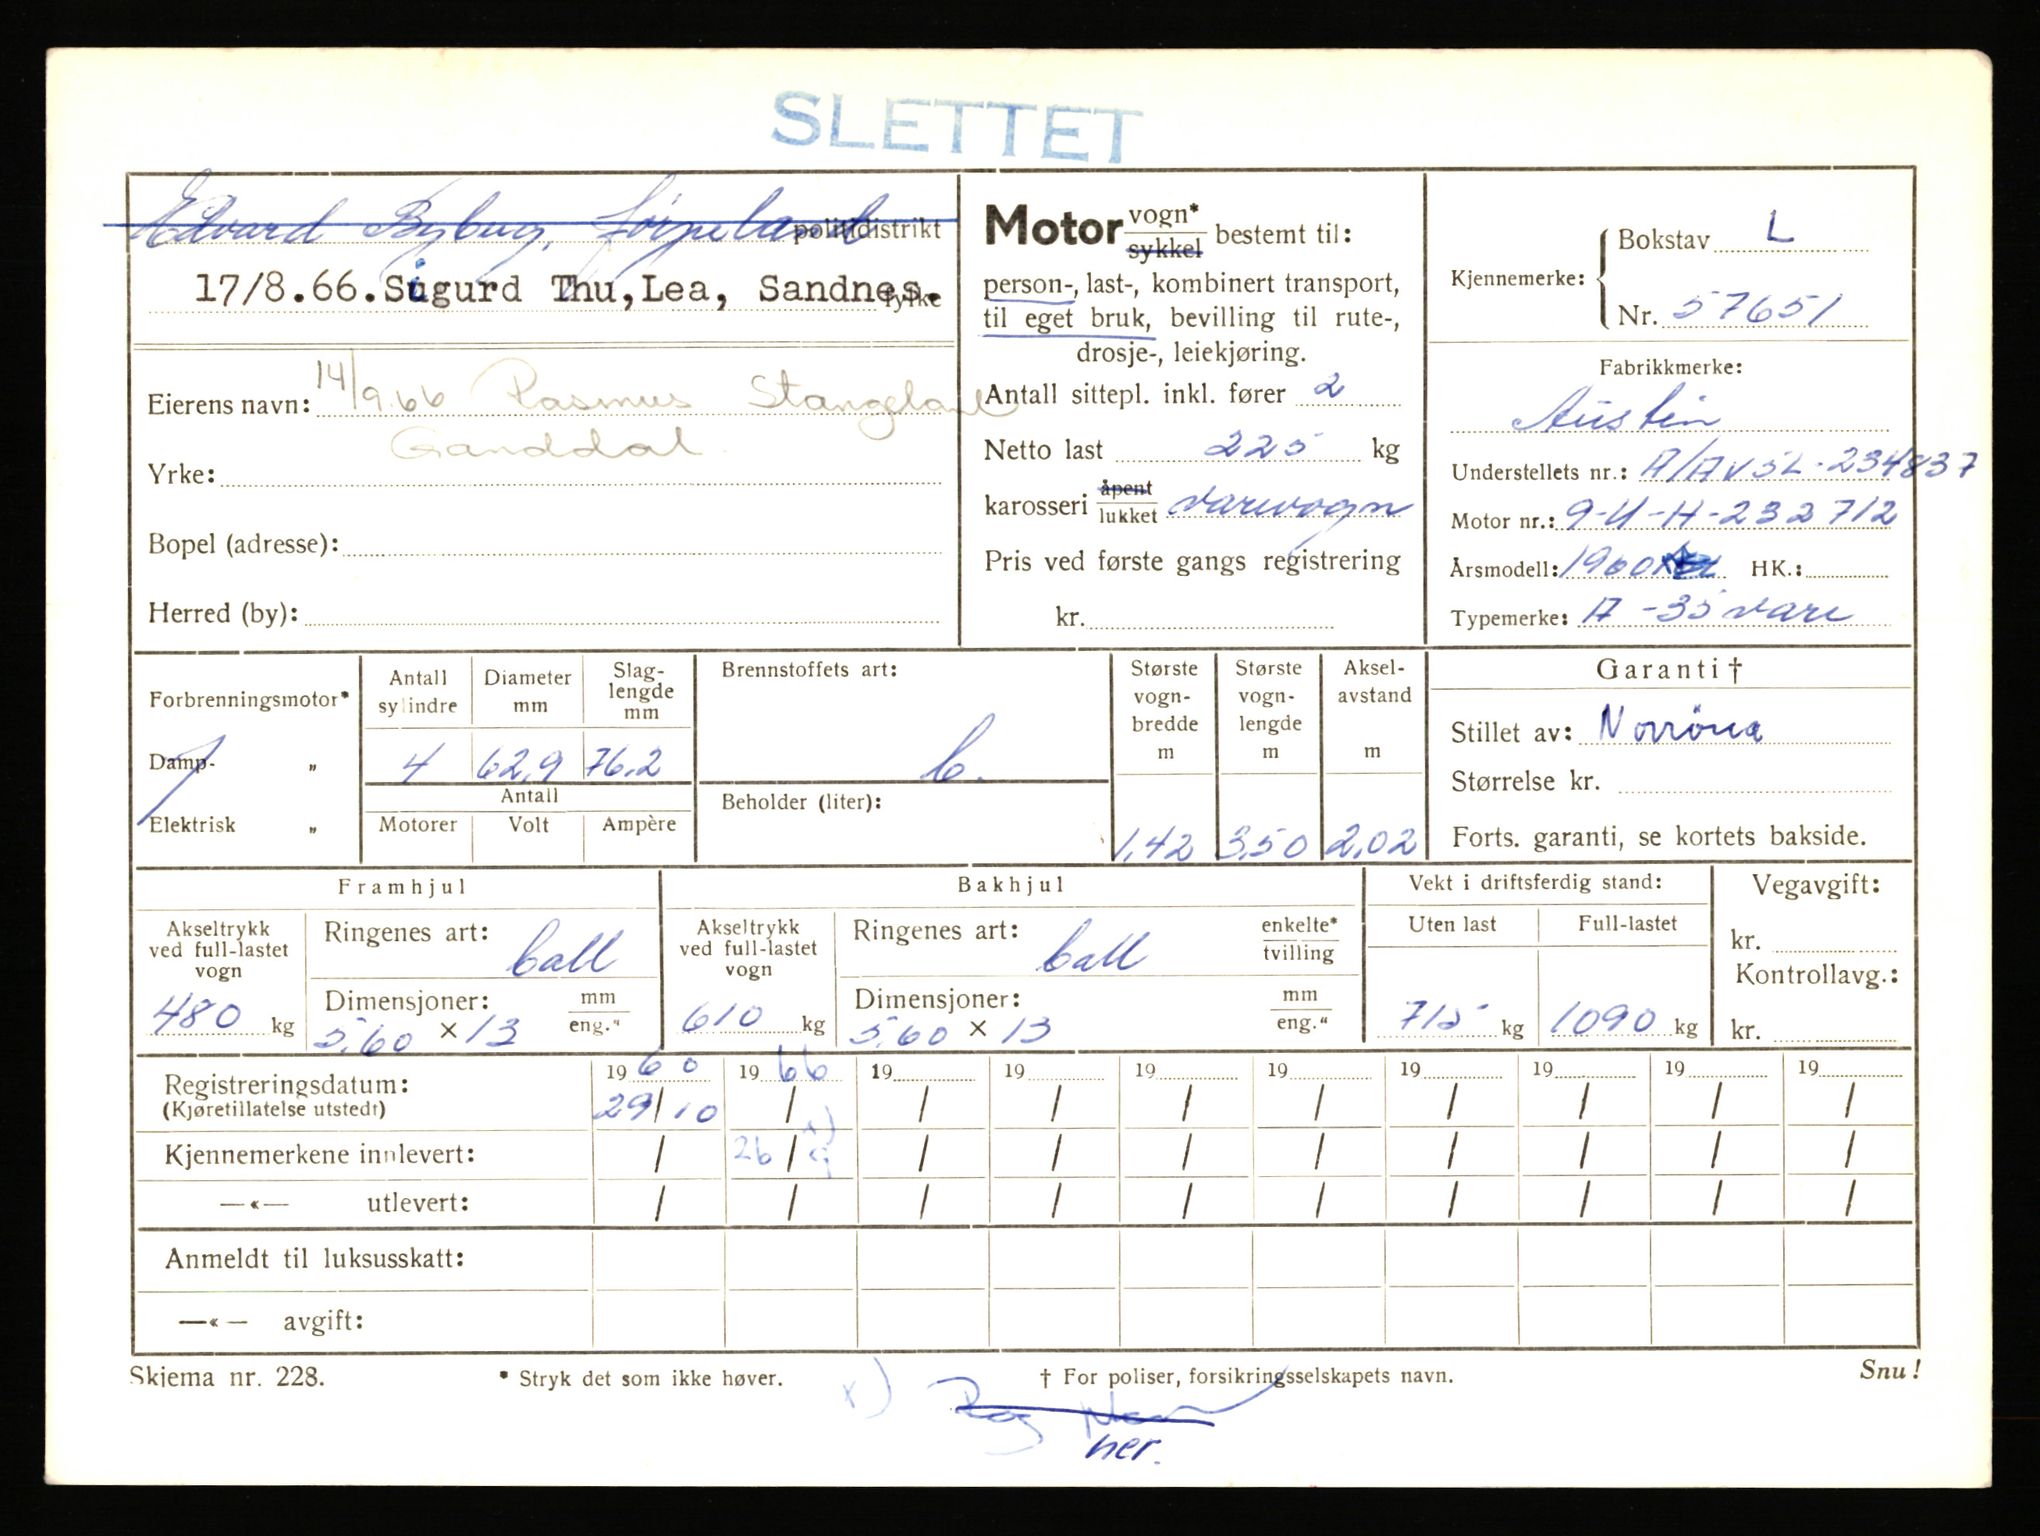 SLETTET
Edvard Byberg, Jørpeland politidistrikt
17/8.66. Sigurd Thu, Lea, Sandnes. fylke
Eierens navn: 14/9.66 Rasmus Stangeland
Ganddal
Yrke:
Bopel (adresse):
Herred (by):
Motor vogn* sykkel bestemt til:
person-, last-, kombinert transport,
til eget bruk, bevilling til rute-,
drosje-, leiekjøring.
Antall sittepl. inkl. fører 2
Netto last 225 kg
karosseri åpent lukket varevogn
Pris ved første gangs registrering
kr.
Kjennemerke: Bokstav L
Nr. 57651
Fabrikkmerke:
Austin
Understellets nr.: A/AV5L-234837
Motor nr.: 9-U-H-232712
Årsmodell: 1960 HK.:
Typemerke: A-35 vare
Forbrenningsmotor*
Damp- „
Elektrisk „
Antall sylindre 4
Diameter mm 62,9
Slag-lengde mm 76.2
Antall
Motorer Volt Ampère
Brennstoffets art: b.
Beholder (liter):
Største vogn-bredde m 1,42
Største vogn-lengde m 3,50
Aksel-avstand m 2,02
Garanti †
Stillet av: Norröna
Størrelse kr.
Forts. garanti, se kortets bakside.
Framhjul
Akseltrykk ved full-lastet vogn 480 kg
Ringenes art: ball
Dimensjoner: 5,60 × 13 mm eng."
Bakhjul
Akseltrykk ved full-lastet vogn 610 kg
Ringenes art: ball enkelte* tvilling
Dimensjoner: 5,60 × 13 mm eng."
Vekt i driftsferdig stand:
Uten last 715 kg
Full-lastet 1090 kg
Vegavgift:
kr.
Kontrollavg.:
kr.
Registreringsdatum: 1960 1966 19 19 19 19 19 19 19 19
(Kjøretillatelse utstedt) 29/10 / / / / / / / / /
Kjennemerkene innlevert: / 26/9 x) / / / / / / / /
—«— utlevert: / / / / / / / / / /
Anmeldt til luksusskatt:
—«— avgift:
Skjema nr. 228. * Stryk det som ikke høver. † For poliser, forsikringsselskapets navn. Snu!
x)
her.